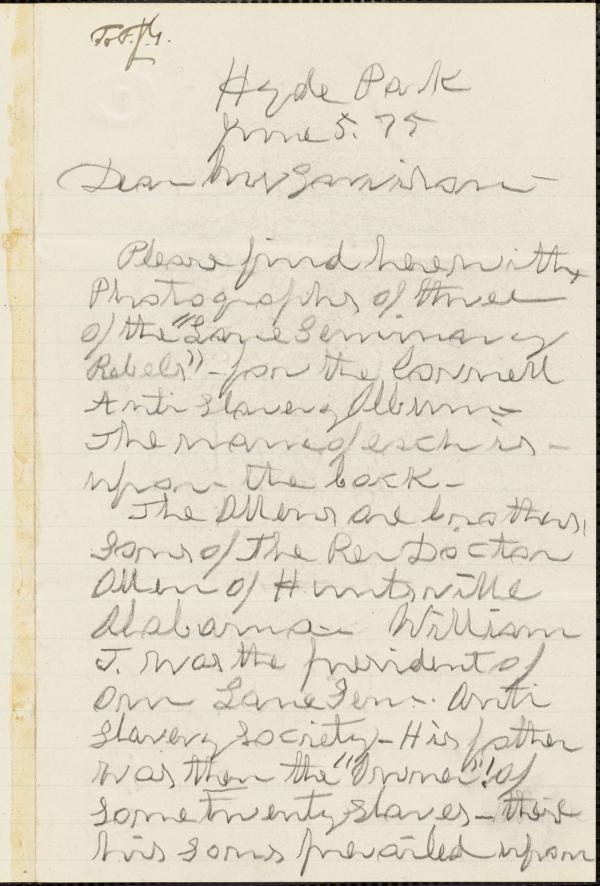 To F.J.G.
Hyde Park
June 5. 75
Dear Mr Garrison
Please find herewith
Photographs of three
of the "Lane Seminary
Rebels" - for the Cornell
Anti Slavery Album -
The name of each is -
upon - the back -
The Allens are brothers,
Sons of The Rev Doctor
Allen of Huntsville
Alabama - William
T. was the president of
our Lane Sem - Anti
Slavery Society - His father
was then the "Owner"! of
some twenty slaves -
his sons prevailed upon